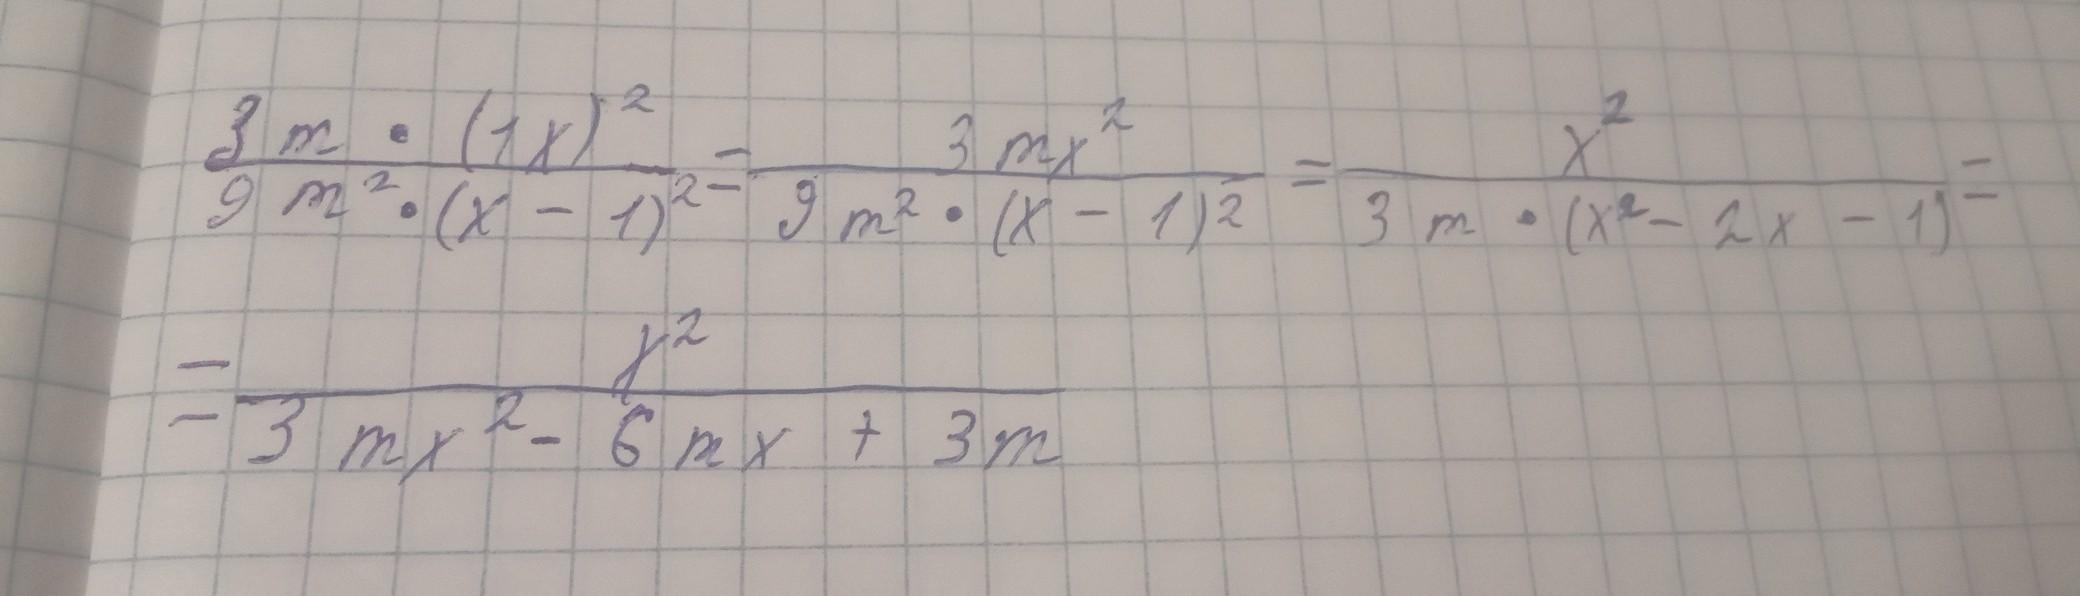 \frac{3m \cdot (1x)^2}{9m^2 \cdot (x-1)^2} = \frac{3mx^2}{9m^2 \cdot (x-1)^2} = \frac{x^2}{3m \cdot (x^2-2x-1)} =
= \frac{x^2}{3mx^2-6mx+3m}